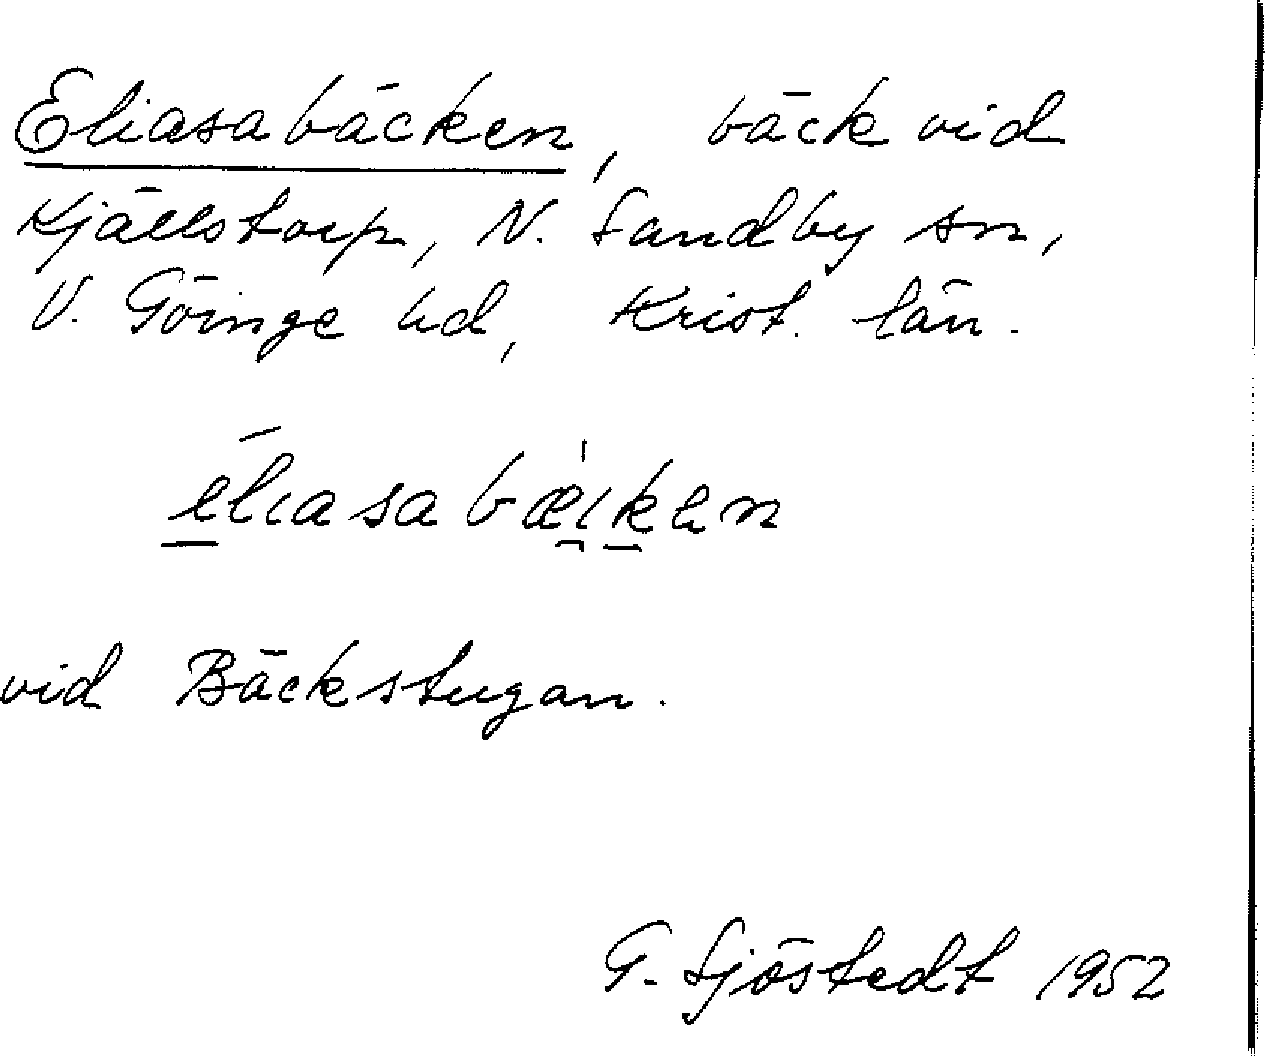 Eliasabäcken, bäck vid
Kjällstorp, N. Sandby sn,
V. Göinge hd, Krist. län.
eliasabæiken
vid Bäckstugan.
G. Sjöstedt 1952